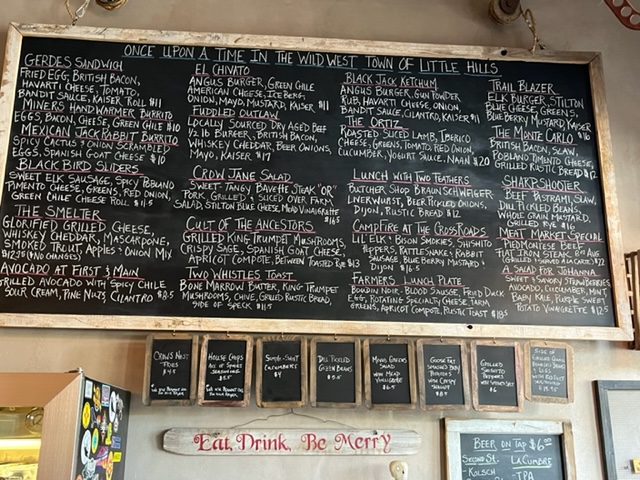 ONCE UPON A TIME IN THE WILD WEST TOWN OF LITTLE HILLS
GERDES SANDWICH
FRIED EGG, BRITISH BACON,
HAVARTI CHEESE, TOMATO,
BANDIT SAUCE, KAISER ROLL $11
MINERS HANDWARMER BURRITO
EGGS, BACON, CHEESE, GREEN CHILE $10
MEXICAN JACKRABBIT BURRITO
SPICY CACTUS & ONION SCRAMBLED
EGGS, SPANISH GOAT CHEESE $10
BLACK BIRD SLIDERS
SWEET ELK SAUSAGE, SPICY POBLANO
PIMENTO CHEESE, GREENS, RED ONION,
GREEN CHILE CHEESE ROLL $11.5
THE SMELTER
GLORIFIED GRILLED CHEESE,
WHISKEY CHEDDAR, MASCARPONE,
SMOKED TROUT, APPLES & ONION MIX
$12.75 (NO CHANGES)
AVOCADO AT FIRST & MAIN
GRILLED AVOCADO WITH SPICY CHILE
SOUR CREAM, PINE NUTS, CILANTRO $8.5
EL CHIVATO
ANGUS BURGER, GREEN CHILE
AMERICAN CHEESE, ICEBERG,
ONION, MAYO, MUSTARD, KAISER $11
FUDDLED OUTLAW
LOCALLY SOURCED DRY AGED BEEF
1/2 LB BURGER, BRITISH BACON,
WHISKEY CHEDDAR, BEER ONIONS,
MAYO, KAISER $17
CROW JANE SALAD
SWEET-TANGY BAVETTE STEAK "OR"
PORK, GRILLED & SLICED OVER FARM
SALAD, STILTON BLUE CHEESE, MEAD VINAIGRETTE
CULT OF THE ANCESTORS
GRILLED KING TRUMPET MUSHROOMS,
CRISPY SAGE, SPANISH GOAT CHEESE,
APRICOT COMPOTE, BETWEEN TOASTED RYE $13
TWO WHISTLES TOAST
BONE MARROW BUTTER, KING TRUMPET
MUSHROOMS, CHIVE, GRILLED RUSTIC BREAD,
SIDE OF SPECK $11.5
BLACK JACK KETCHUM
ANGUS BURGER, GUN POWDER
RUB, HAVARTI CHEESE, ONION,
BANDIT SAUCE, CILANTRO, KAISER $11
THE ORTIZ
ROASTED SLICED LAMB, IBERICO
CHEESE, GREENS, TOMATO, RED ONION,
CUCUMBER, YOGURT SAUCE, NAAN $20
LUNCH WITH TWO TEATHERS
BUTCHER SHOP BRAUNSCHWEIGER
LIVERWURST, BEER PICKLED ONIONS,
DIJON, RUSTIC BREAD $12
CAMPFIRE AT THE CROSSROADS
LIL ELK & BISON SMOKIES, SHISHITO
PEPPERS, RATTLESNAKE & RABBIT
SAUSAGE, BLUE BERRY MUSTARD &
DIJON $16.5
FARMERS LUNCH PLATE
BOUDIN NOIR - BLOOD SAUSGE, FRIED DUCK
EGG, ROTATING SPECIALTY CHEESE, FARM
GREENS, APRICOT COMPOTE, RUSTIC TOAST
TRAIL BLAZER
ELK BURGER, STILTON
BLUE CHEESE, GREENS,
BLUE BERRY MUSTARD, KAISER
THE MONTE CARLO
BRITISH BACON, SLAW,
POBLANO PIMENTO CHEESE,
GRILLED RUSTIC BREAD $12
SHARPSHOOTER
BEEF PASTRAMI, SLAW,
DILL PICKLED BEANS,
WHOLE GRAIN MUSTARD,
GRILLED RYE
MEAT MARKET SPECIAL
PIEDMONTESE BEEF
FLAT IRON STEAK,
GRILLED & SHAVED AVOCADO
A SALAD FOR JOHANNA
SWEET & SAVORY STRAWBERRIES
AVOCADO, CUCUMBER, MINT
BABY KALE, PURPLE SWEET
POTATO VINAIGRETTE $12.5
CROWS NEST
FRIES
HOUSE CHIPS
DILL PICKLED
GREEN BEANS
$5.5
MIXED GREENS
SALAD
WITH MEAD
VINAIGRETTE
$6.5
GOOSE FAT
SMASHED BABY
POTATOES
WITH CRISPY
GRILLED
SHISHITO
PEPPERS
$6
Eat, Drink, Be Merry
BEER ON TAP $6
SECOND ST.
LA CUMBRE
- KOLSCH